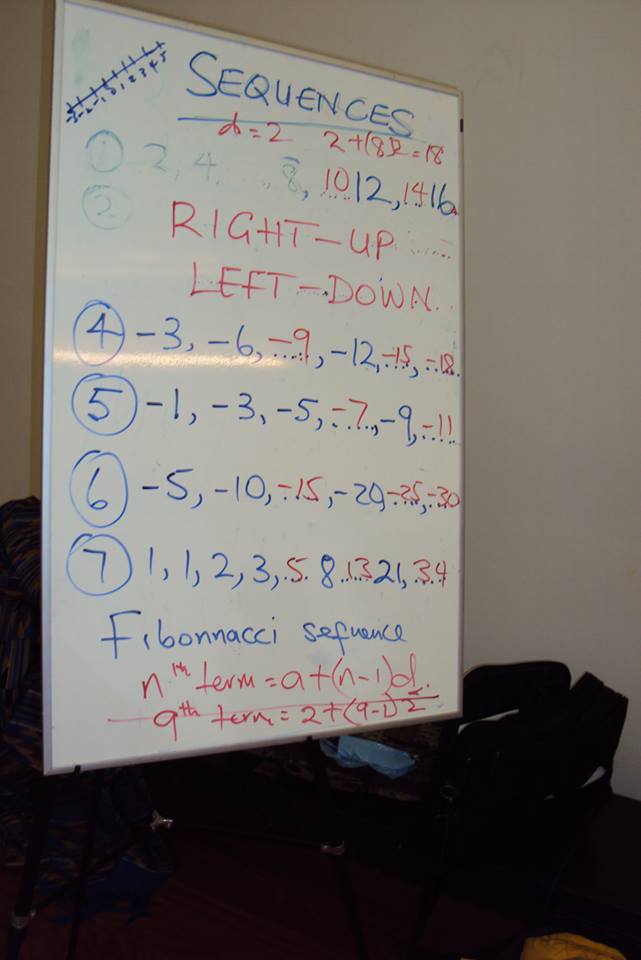 -3 -2 -1 0 1 2 3 4 5
SEQUENCES
d=2 2+(8)2=18
① 2, 4 8, 10 12, 14 16
②
RIGHT-UP
LEFT-DOWN
④ -3, -6, -9, -12, -15, -18
⑤ -1, -3, -5, -7, -9, -11
⑥ -5, -10, -15, -20, -25, -30
⑦ 1, 1, 2, 3, 5 8 13 21, 34
Fibonnacci sequence
nth term = a+(n-1)d
9th term = 2+(9-1)2